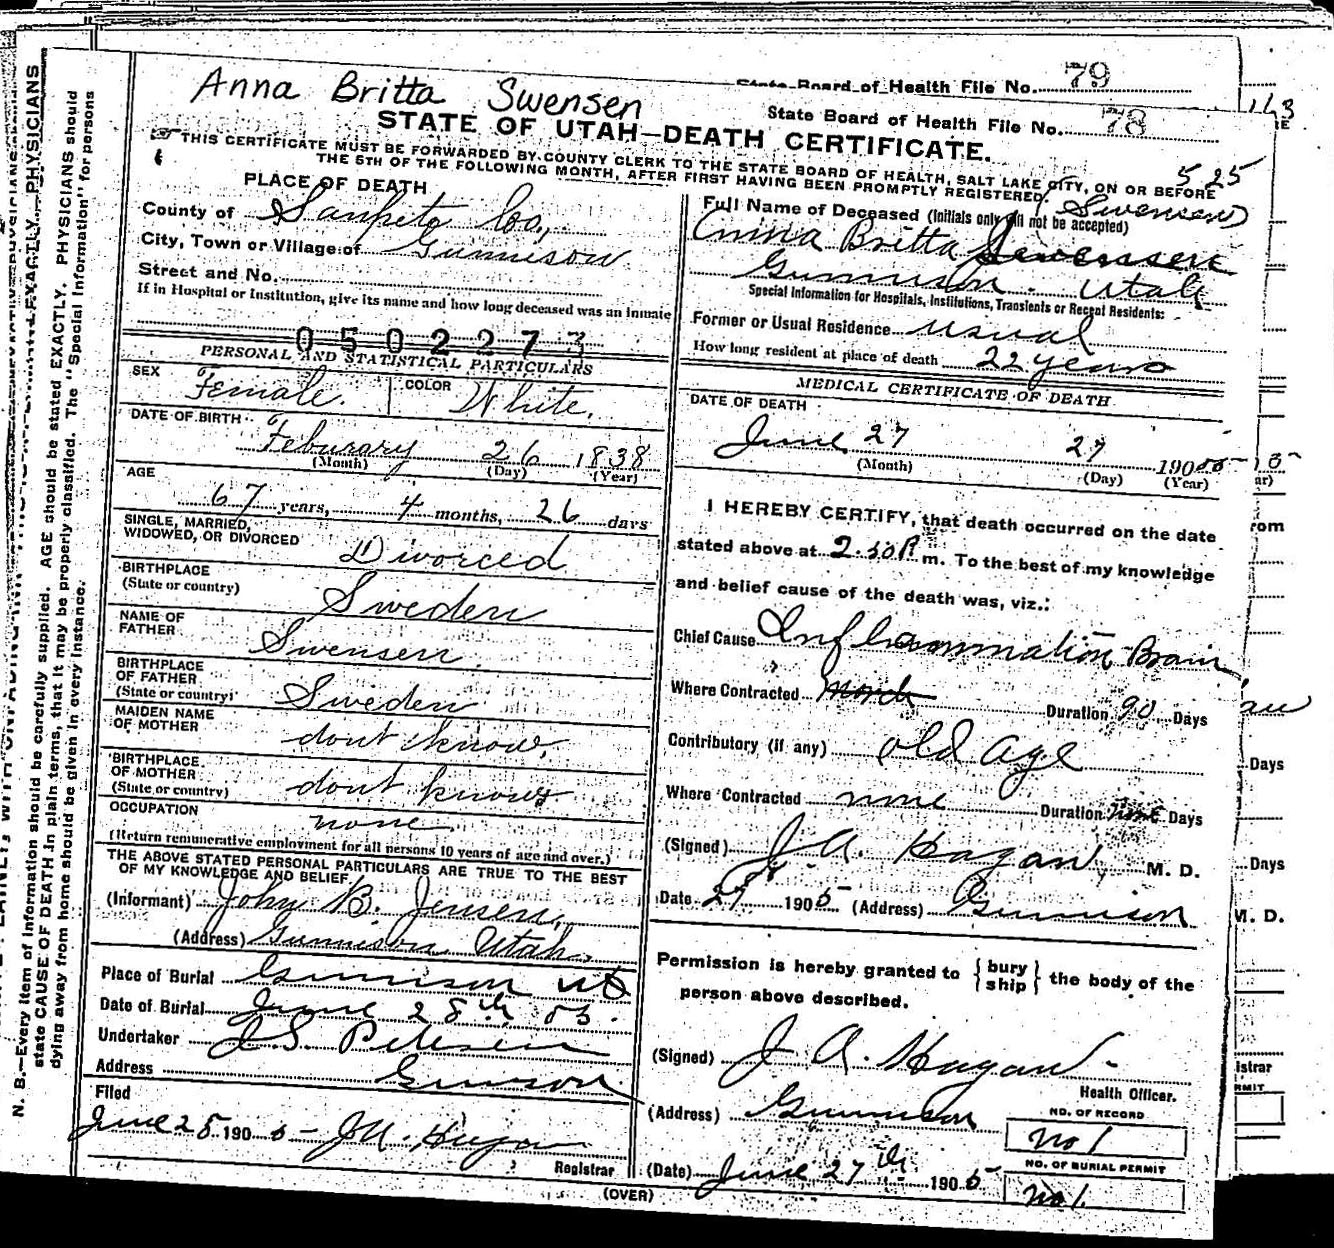 State Board of Health File No. 79
Anna Britta Swensen
State Board of Health File No. 78
STATE OF UTAH—DEATH CERTIFICATE.
THIS CERTIFICATE MUST BE FORWARDED BY COUNTY CLERK TO THE STATE BOARD OF HEALTH, SALT LAKE CITY, ON OR BEFORE
THE 5TH OF THE FOLLOWING MONTH, AFTER FIRST HAVING BEEN PROMPTLY REGISTERED.
525
PLACE OF DEATH
County of Sanpete Co.,
City, Town or Village of Gunnison
Street and No.
If in Hospital or Institution, give its name and how long deceased was an inmate
0502273
PERSONAL AND STATISTICAL PARTICULARS
SEX Female. COLOR White.
DATE OF BIRTH
Feburary 26 1838
(Month) (Day) (Year)
AGE
67 years, 4 months, 26 days
SINGLE, MARRIED,
WIDOWED, OR DIVORCED Divorced
BIRTHPLACE
(State or country) Sweden
NAME OF
FATHER Swensen.
BIRTHPLACE
OF FATHER
(State or country) Sweden
MAIDEN NAME
OF MOTHER dont know,
BIRTHPLACE
OF MOTHER
(State or country) dont know
OCCUPATION none
(Return remunerative employment for all persons 10 years of age and over.)
THE ABOVE STATED PERSONAL PARTICULARS ARE TRUE TO THE BEST
OF MY KNOWLEDGE AND BELIEF
(Informant) John B. Jensen,
(Address) Gunnison Utah.
Place of Burial Gunnison ut
Date of Burial June 28th 05.
Undertaker J.S. Petersen
Address Gunnison
Filed
June 28 1905 J A. Hagan
Registrar
(OVER)
(Swensen)
Full Name of Deceased (Initials only will not be accepted)
Anna Britta
Gunnison. Utah
Special Information for Hospitals, Institutions, Transients or Recent Residents:
Former or Usual Residence usual
How long resident at place of death 22 years
MEDICAL CERTIFICATE OF DEATH
DATE OF DEATH
June 27 27 1905
(Month) (Day) (Year)
I HEREBY CERTIFY, that death occurred on the date
stated above at 2.30 P m. To the best of my knowledge
and belief cause of the death was, viz.:
Chief Cause Inflammation Brain
Where Contracted Duration 90 Days
Contributory (if any) old age
Where Contracted none Duration none Days
(Signed) J. A. Hagan, M. D.
Date 27 1905 (Address) Gunnison
Permission is hereby granted to { bury ship } the body of the
person above described.
(Signed) J A. Hagan
Health Officer.
(Address) Gunnison
NO. OF RECORD
No 1
NO. OF BURIAL PERMIT
No 1.
(Date) June 27th 1905
N. B.—Every item of information should be carefully supplied. AGE should be stated EXACTLY. PHYSICIANS should
state CAUSE OF DEATH in plain terms, that it may be properly classified. The "Special Information" for persons
dying away from home should be given in every instance.
Days
Days
M. D.